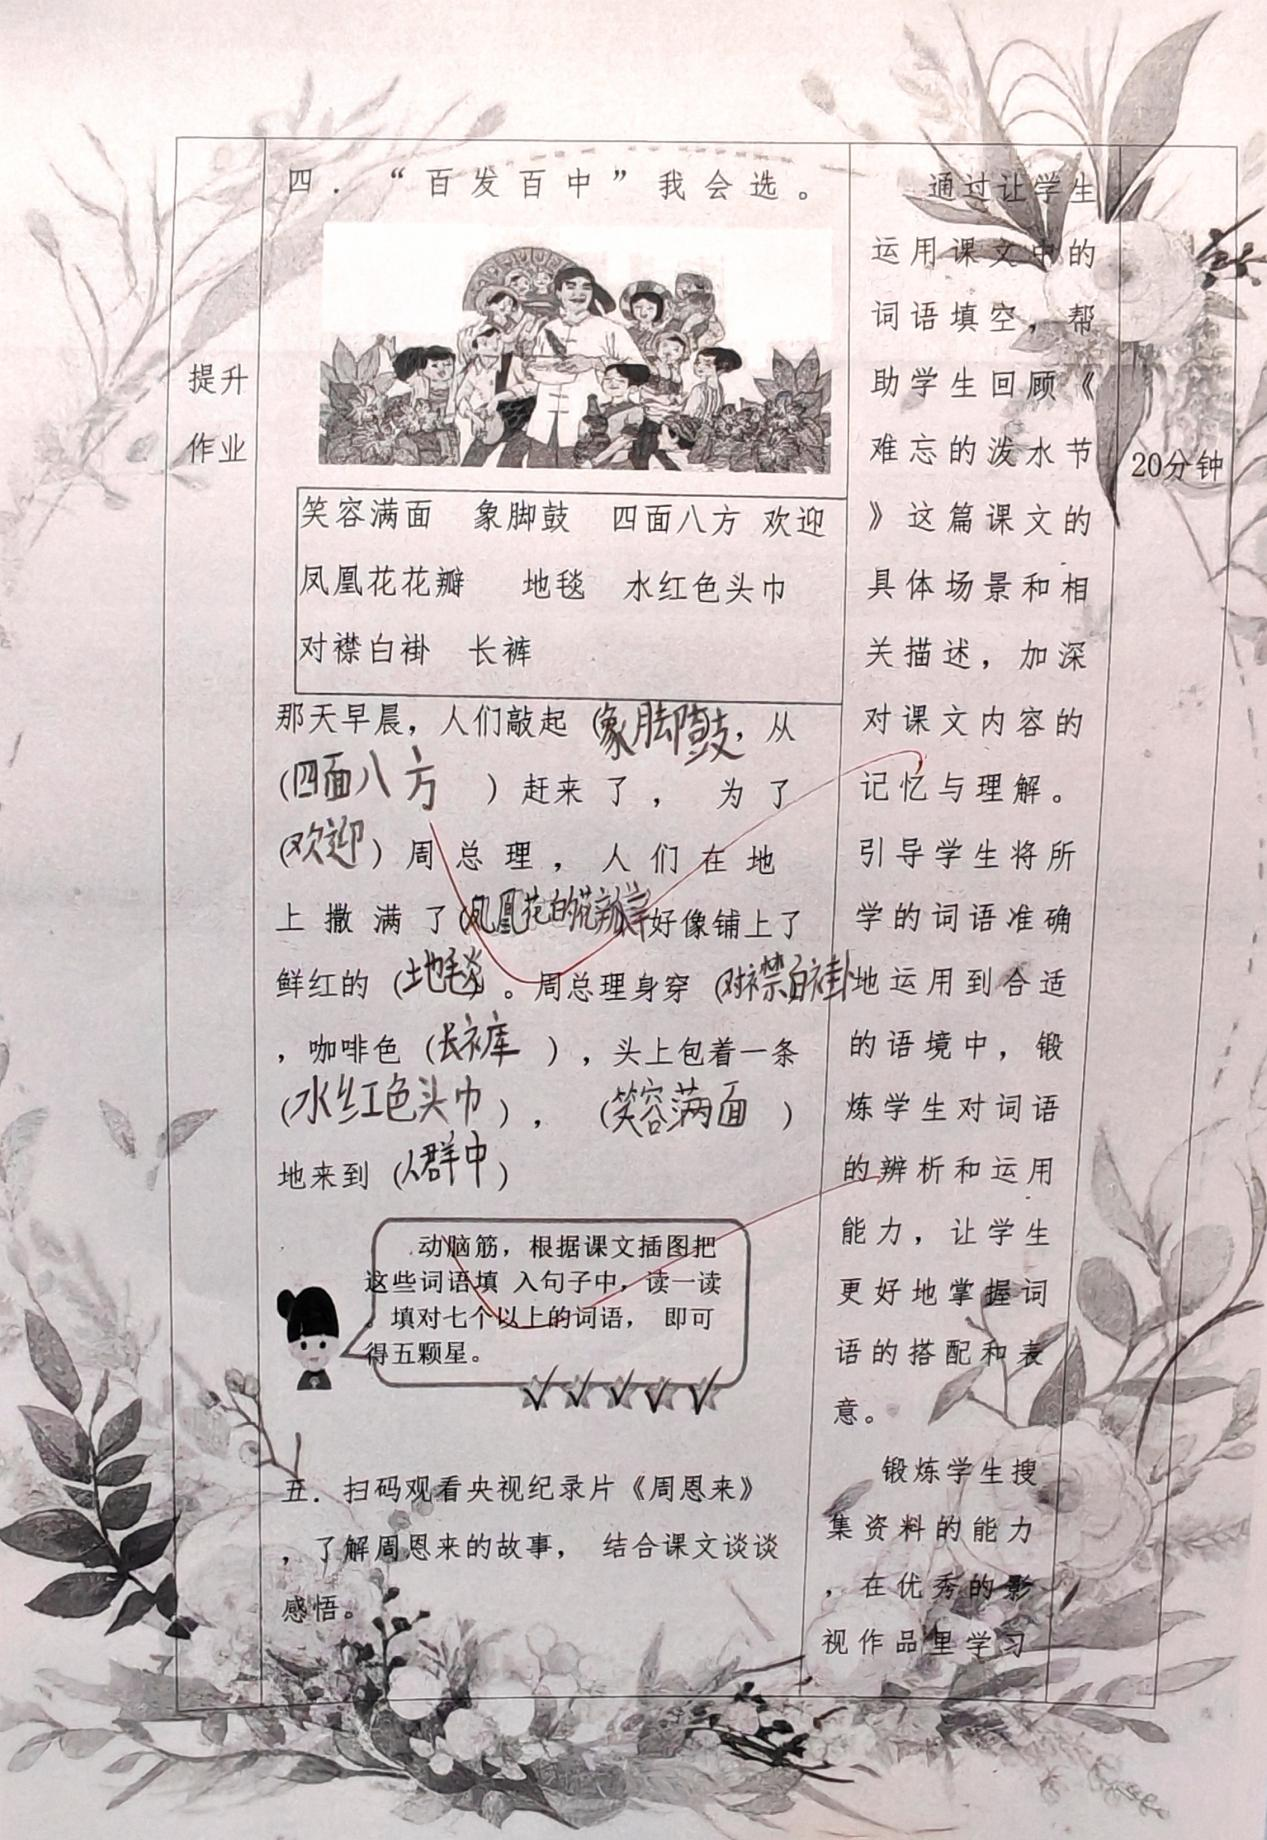 四．“百发百中”我会选。
提升
作业
笑容满面 象脚鼓 四面八方 欢迎
凤凰花花瓣 地毯 水红色头巾
对襟白褂 长裤
那天早晨，人们敲起（象脚鼓，从
（四面八方）赶来了，为了
（欢迎）周总理，人们在地
上撒满了（凤凰花的花瓣，好像铺上了
鲜红的（地毯）。周总理身穿（对襟白褂
，咖啡色（长裤），头上包着一条
（水红色头巾），（笑容满面）
地来到（人群中）
动脑筋，根据课文插图把
这些词语填 入句子中，读一读
。填对七个以上的词语， 即可
得五颗星。
五．扫码观看央视纪录片《周恩来》
，了解周恩来的故事， 结合课文谈谈
感悟。
通过让学生
运用课文中的
词语填空，帮
助学生回顾《
难忘的泼水节
》这篇课文的
具体场景和相
关描述，加深
对课文内容的
记忆与理解。
引导学生将所
学的词语准确
地运用到合适
的语境中，锻
炼学生对词语
的辨析和运用
能力，让学生
更好地掌握词
语的搭配和表
意。
锻炼学生搜
集资料的能力
，在优秀的影
视作品里学习
20分钟